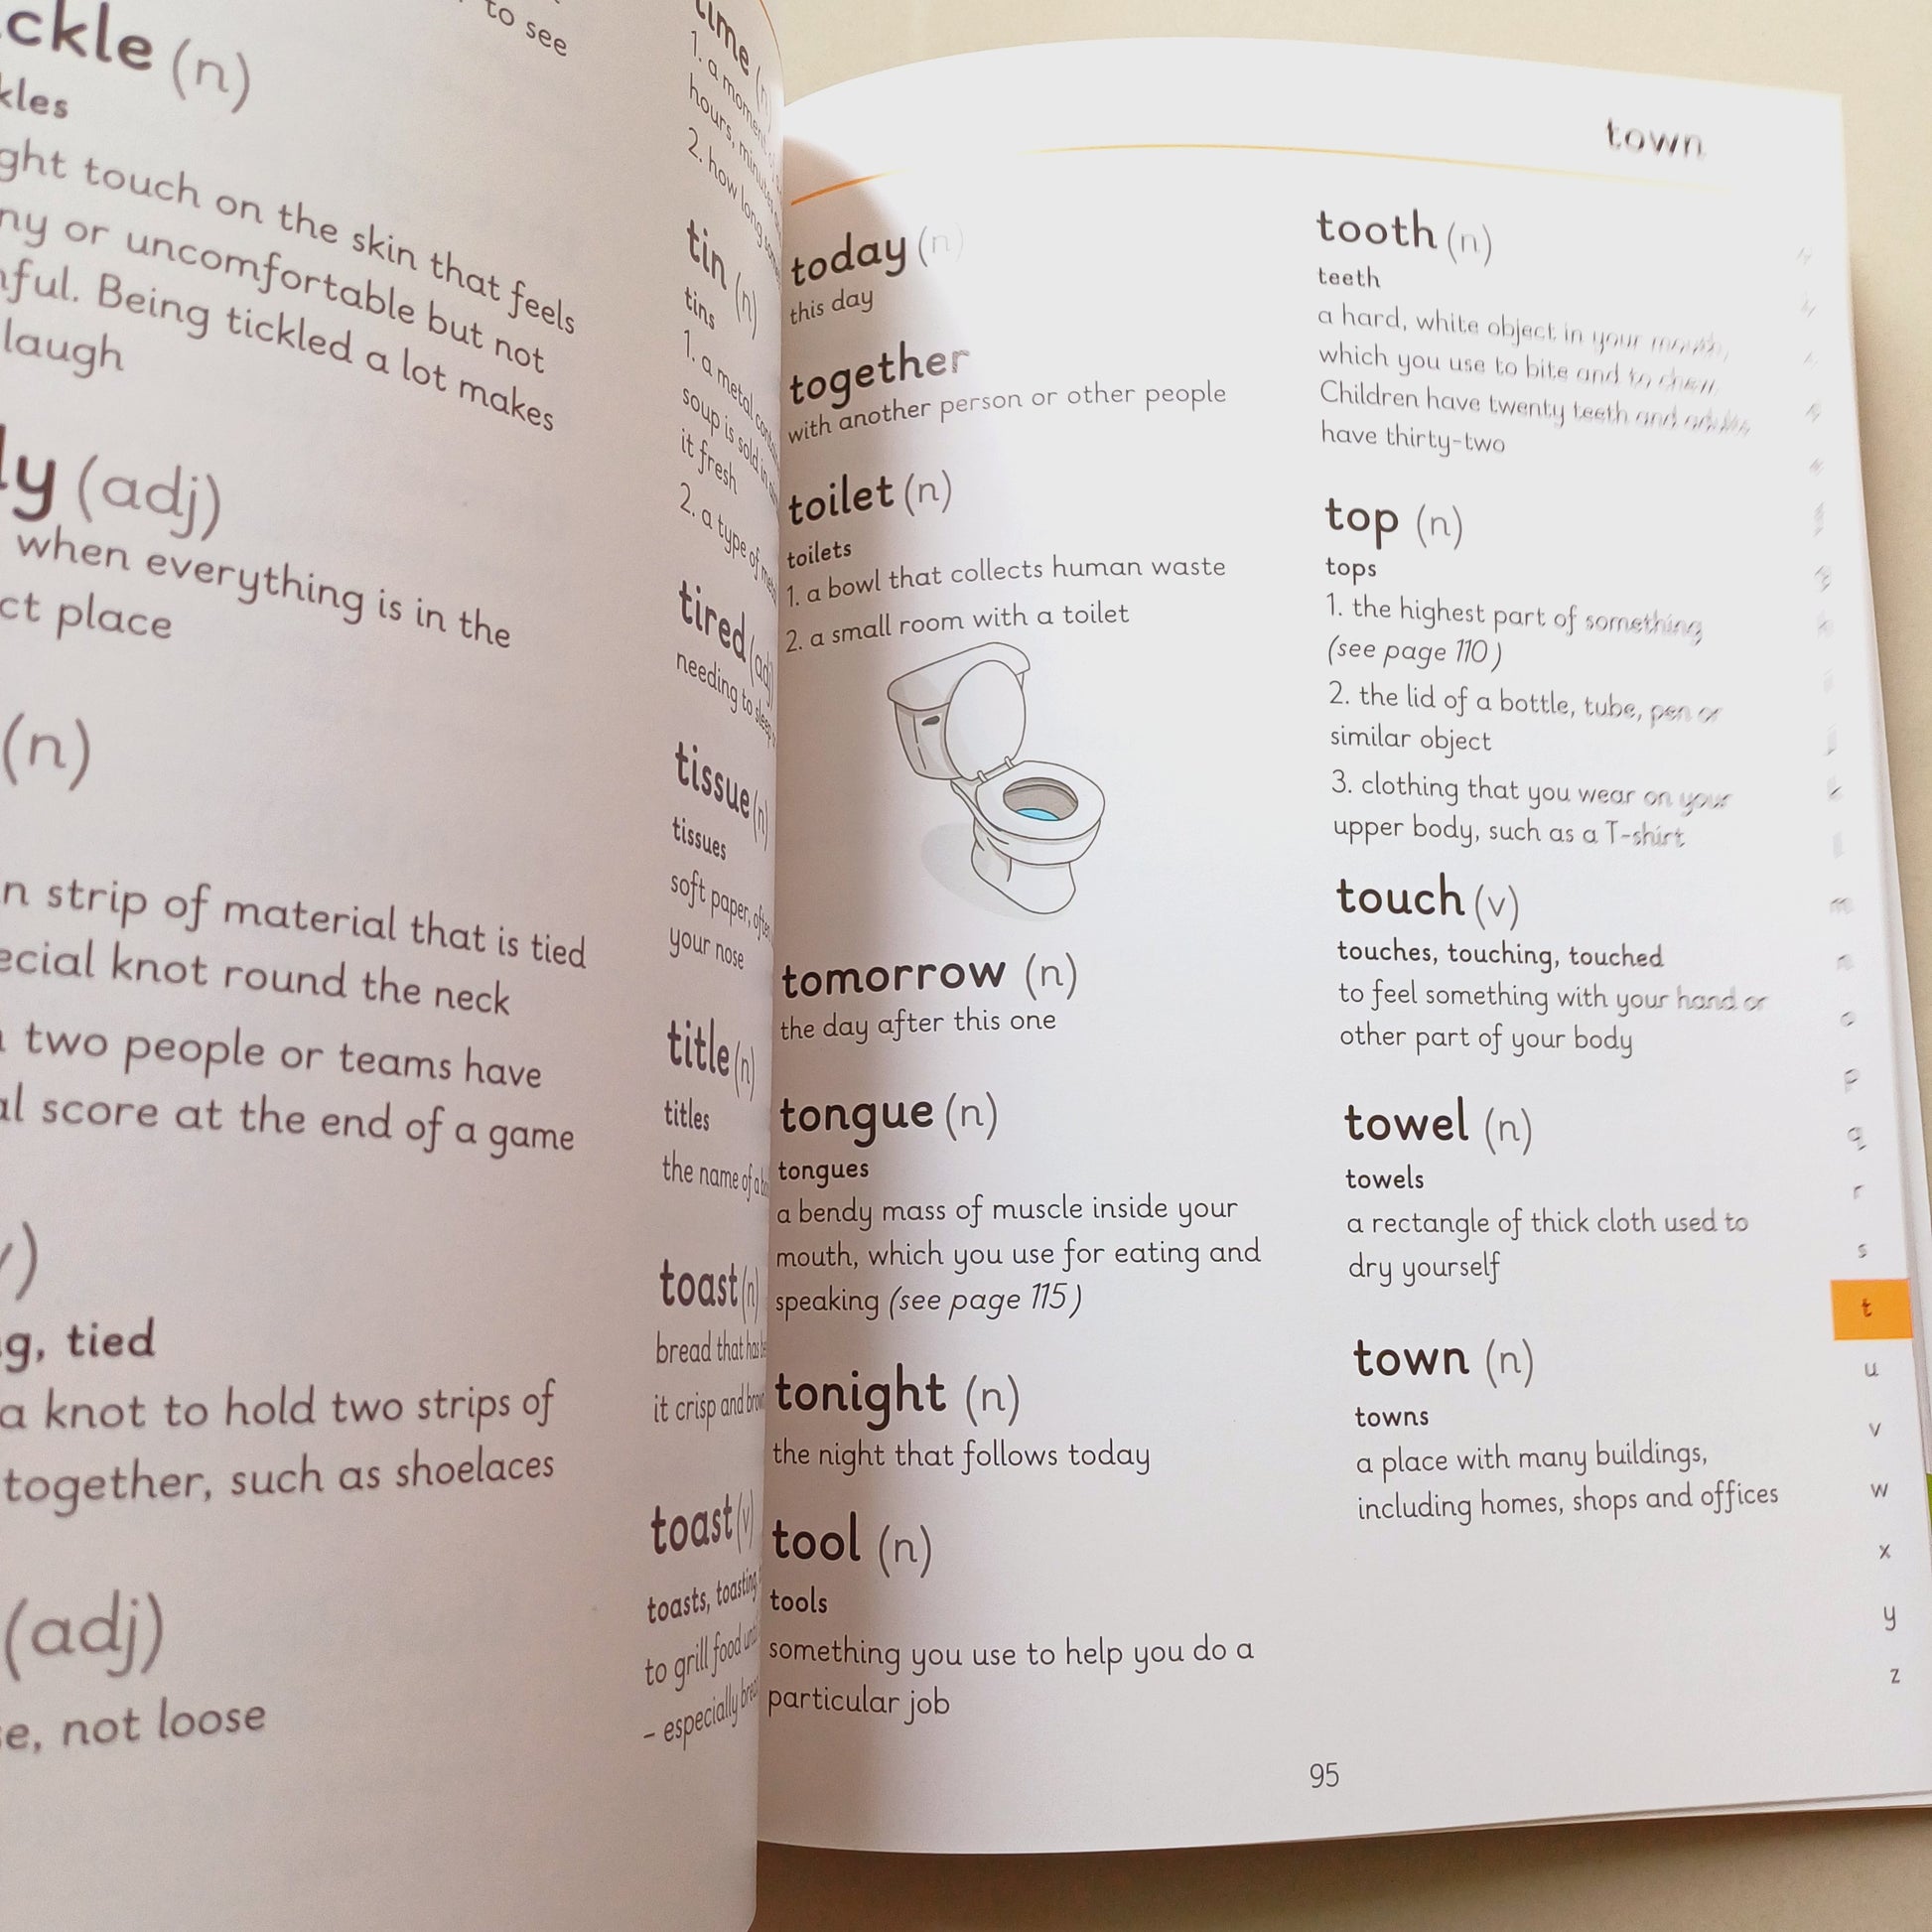 to see
(n)
touch on the skin that feels
or uncomfortable but not
Being tickled a lot makes
laugh
(adj)
when everything is in the
place
(n)
strip of material that is tied
knot round the neck
two people or teams have
score at the end of a game
tied
a knot to hold two strips of
together, such as shoelaces
(adj)
not loose
time
1. a
hours,
2. how long
tin (n)
tins
1. a metal
soup is sold in
it fresh
2. a type of
tired
needing to sleep
tissue (n)
tissues
soft paper,
your nose
title (n)
titles
the name of a
toast (n)
bread that has
it crisp and
toast (v)
toasts, toasting,
to grill food
– especially
town
today (n)
this day
together
with another person or other people
toilet (n)
toilets
1. a bowl that collects human waste
2. a small room with a toilet
tomorrow (n)
the day after this one
tongue (n)
tongues
a bendy mass of muscle inside your
mouth, which you use for eating and
speaking (see page 115)
tonight (n)
the night that follows today
tool (n)
tools
something you use to help you do a
particular job
tooth (n)
teeth
a hard, white object in your mouth,
which you use to bite and to chew.
Children have twenty teeth and adults
have thirty-two
top (n)
tops
1. the highest part of something
(see page 110)
2. the lid of a bottle, tube, pen or
similar object
3. clothing that you wear on your
upper body, such as a T-shirt
touch (v)
touches, touching, touched
to feel something with your hand or
other part of your body
towel (n)
towels
a rectangle of thick cloth used to
dry yourself
town (n)
towns
a place with many buildings,
including homes, shops and offices
m
n
o
p
q
r
s
t
u
v
w
x
y
z
95